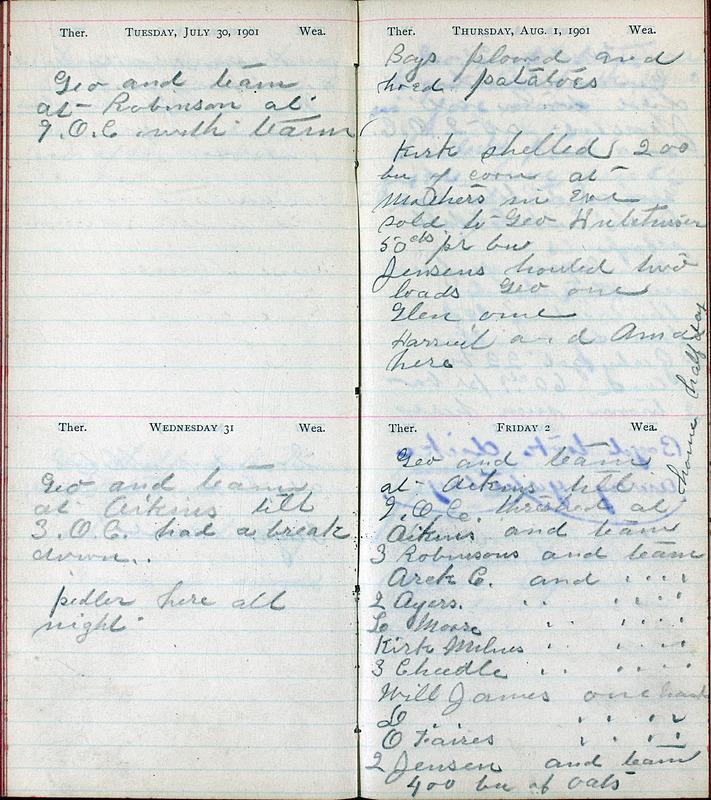 Ther. TUESDAY, JULY 30, 1901 Wea.
Geo and team
at Robinson at
9.O.C with team
Ther. WEDNESDAY 31 Wea.
Geo and team
at Aikins till
3.O.C. had a break
down..
pedler here all
night
Ther. THURSDAY, AUG. 1, 1901 Wea.
Boys plowed and
hoed patatoes
Kirk shelled 200
bu of coorn at
Mathers in Eve
sold to Geo
50 cts pr bu
Jensens houled two
loads Geo one
Glen one
Harriet and Amd
here
Ther. FRIDAY 2 Wea.
Geo and team
at Aikins till
9.O.C. threshed at
Aikins and team
3 Robinsons and team
Arek C. and " "
2 Ayers. " " "
L Moore " "
Kirk Milnes " " "
3 Cheedle " " "
Will James one hand
D " " "
O Faires " " "
2 Jensen and team
400 bu of oats
home half day